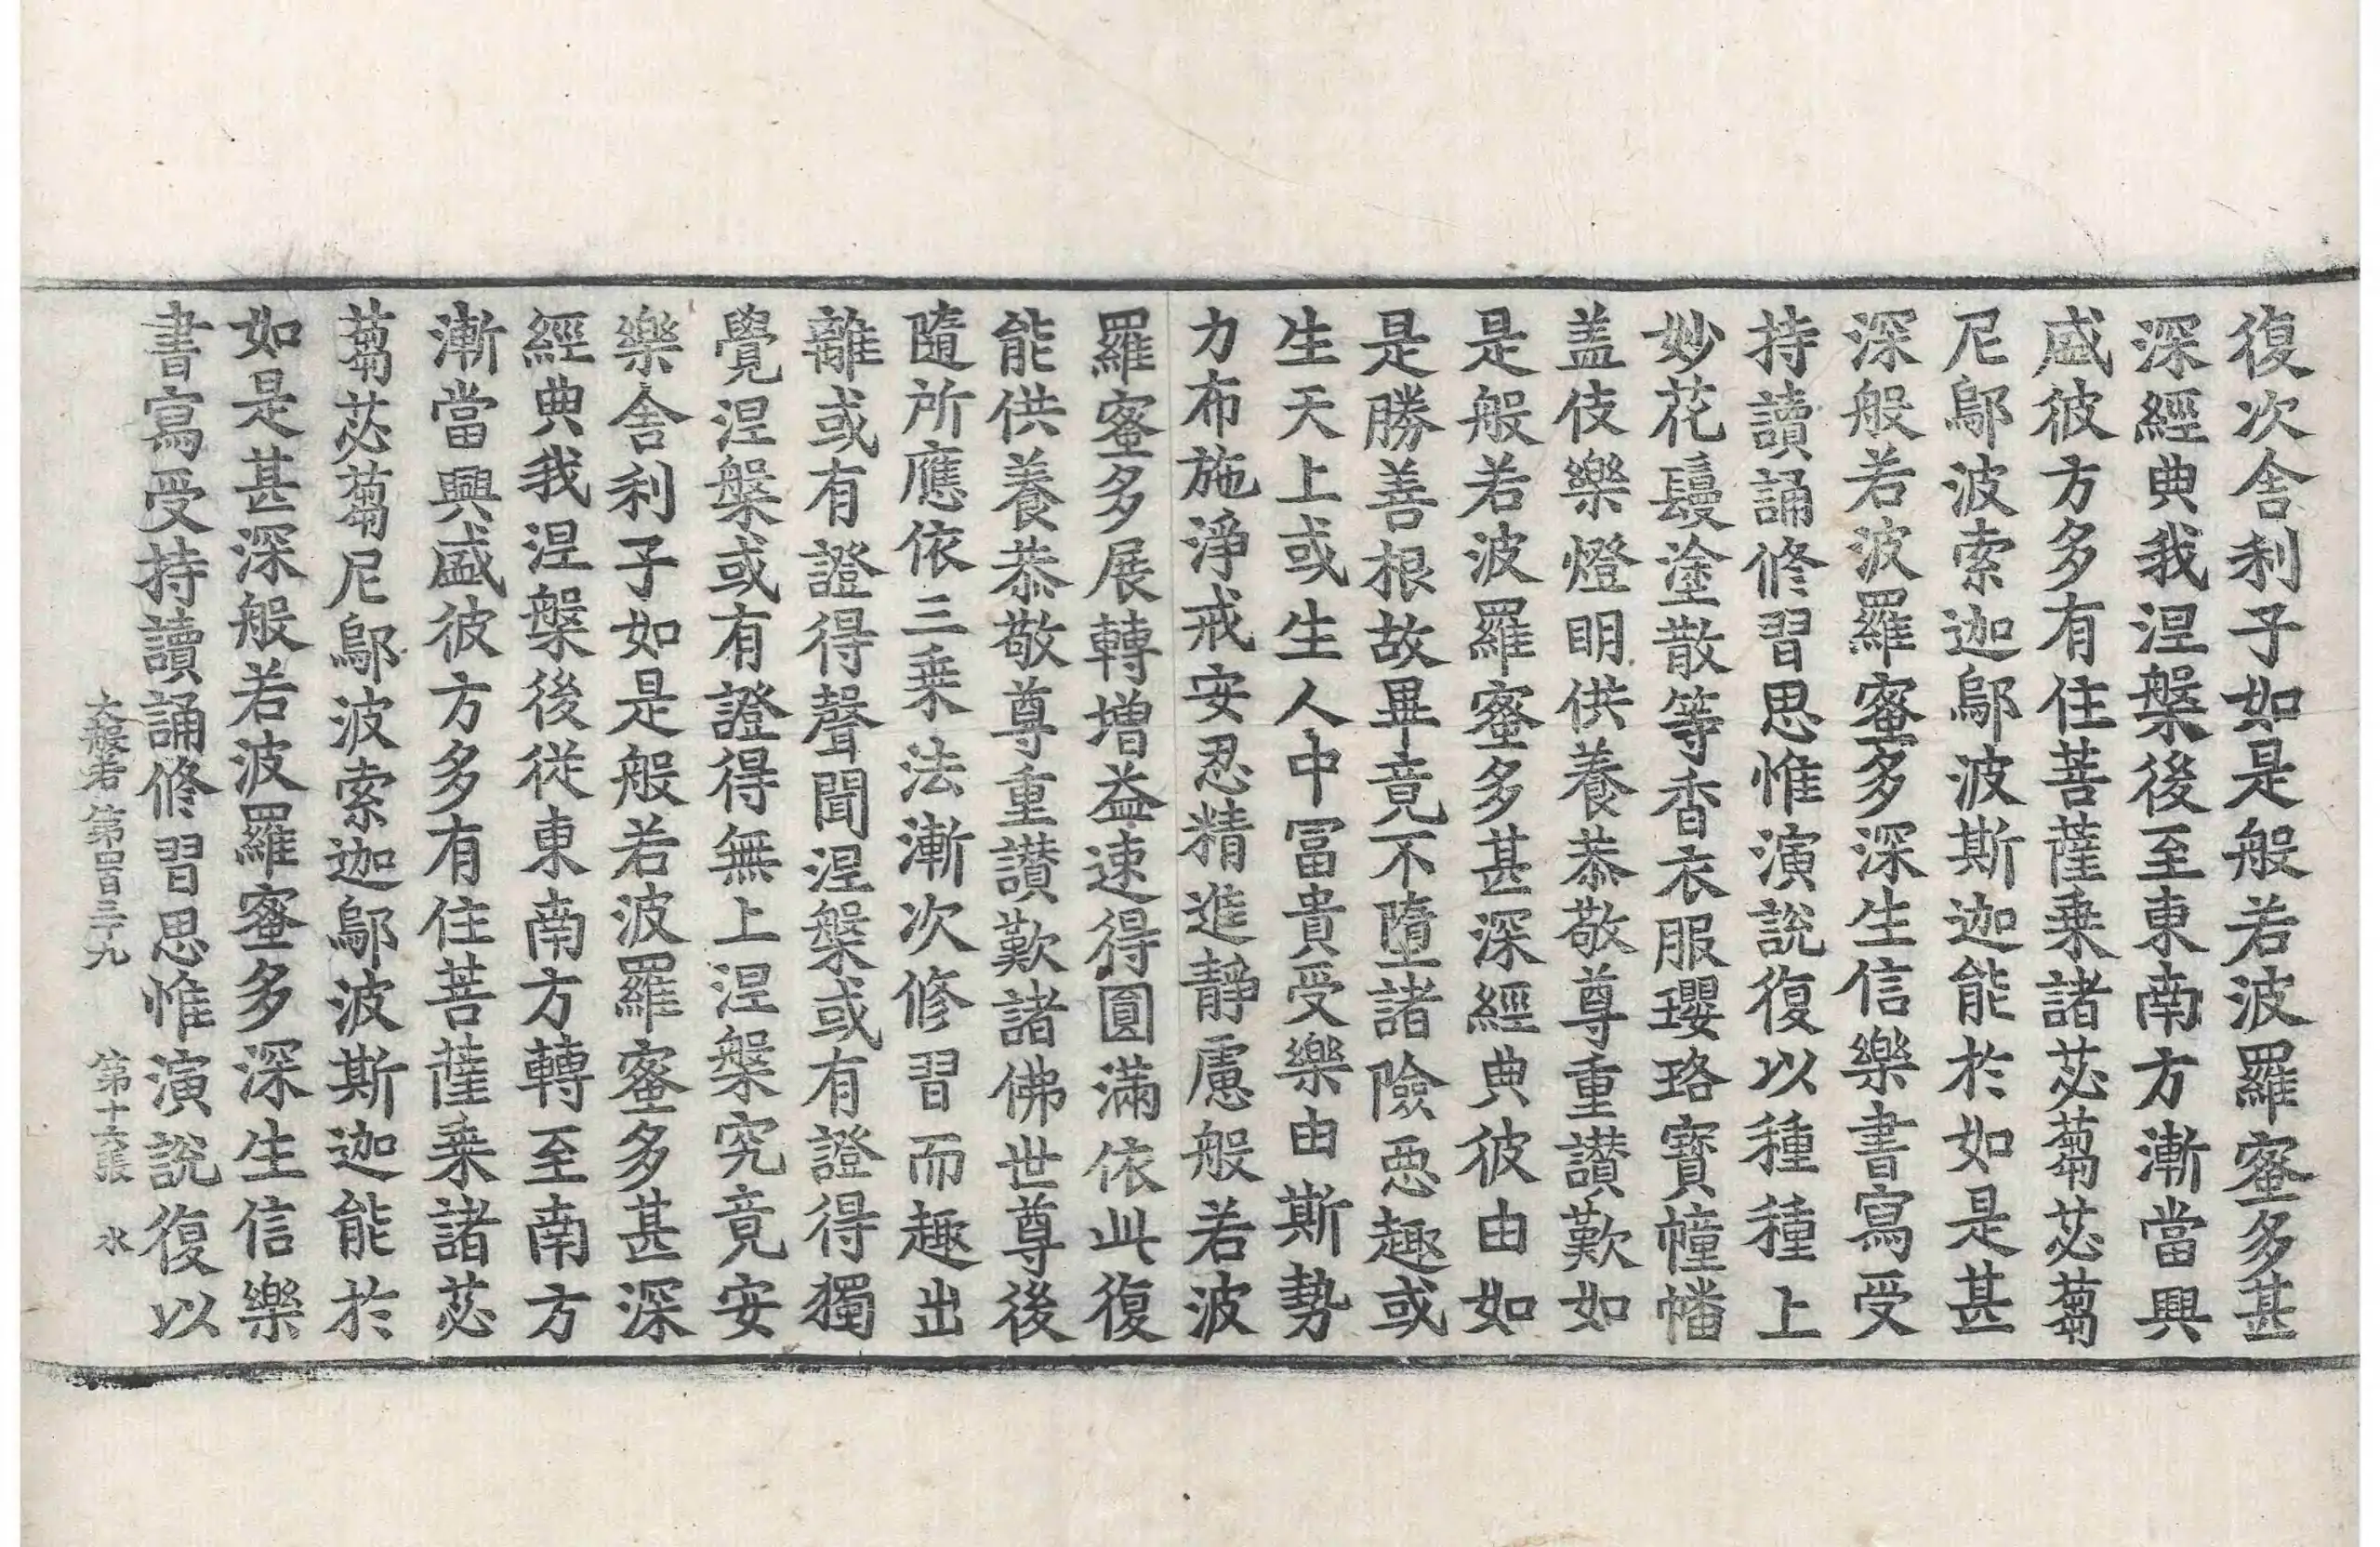 復次舍利子如是般若波羅蜜多甚
深經典我涅槃後至東南方漸當興
盛彼方多有住菩薩乗諸苾蒭苾蒭
尼鄔波索迦鄔波斯迦能於如是甚
深般若波羅蜜多深生信樂書寫受
持讀誦修習思惟演說復以種種上
妙花鬘塗散等香衣服瓔珞寶幢幡
盖伎樂燈明供養恭敬尊重讃歎如
是般若波羅蜜多甚深經典彼由如
是勝善根故畢竟不墮諸險惡趣或
生天上或生人中冨貴受樂由斯勢
力布施淨戒安忍精進靜慮般若波
羅蜜多展轉增益速得圓滿依此復
能供養恭敬尊重讃歎諸佛世尊後
隨所應依三乗法漸次修習而趣出
離或有證得聲聞涅槃或有證得獨
覺涅槃或有證得無上涅槃究竟安
樂舍利子如是般若波羅蜜多甚深
經典我涅槃後從東南方轉至南方
漸當興盛彼方多有住菩薩乗諸苾
蒭苾蒭尼鄔波索迦鄔波斯迦能於
如是甚深般若波羅蜜多深生信樂
書寫受持讀誦修習思惟演說復以
大般若第四百三十九 第十六張 水